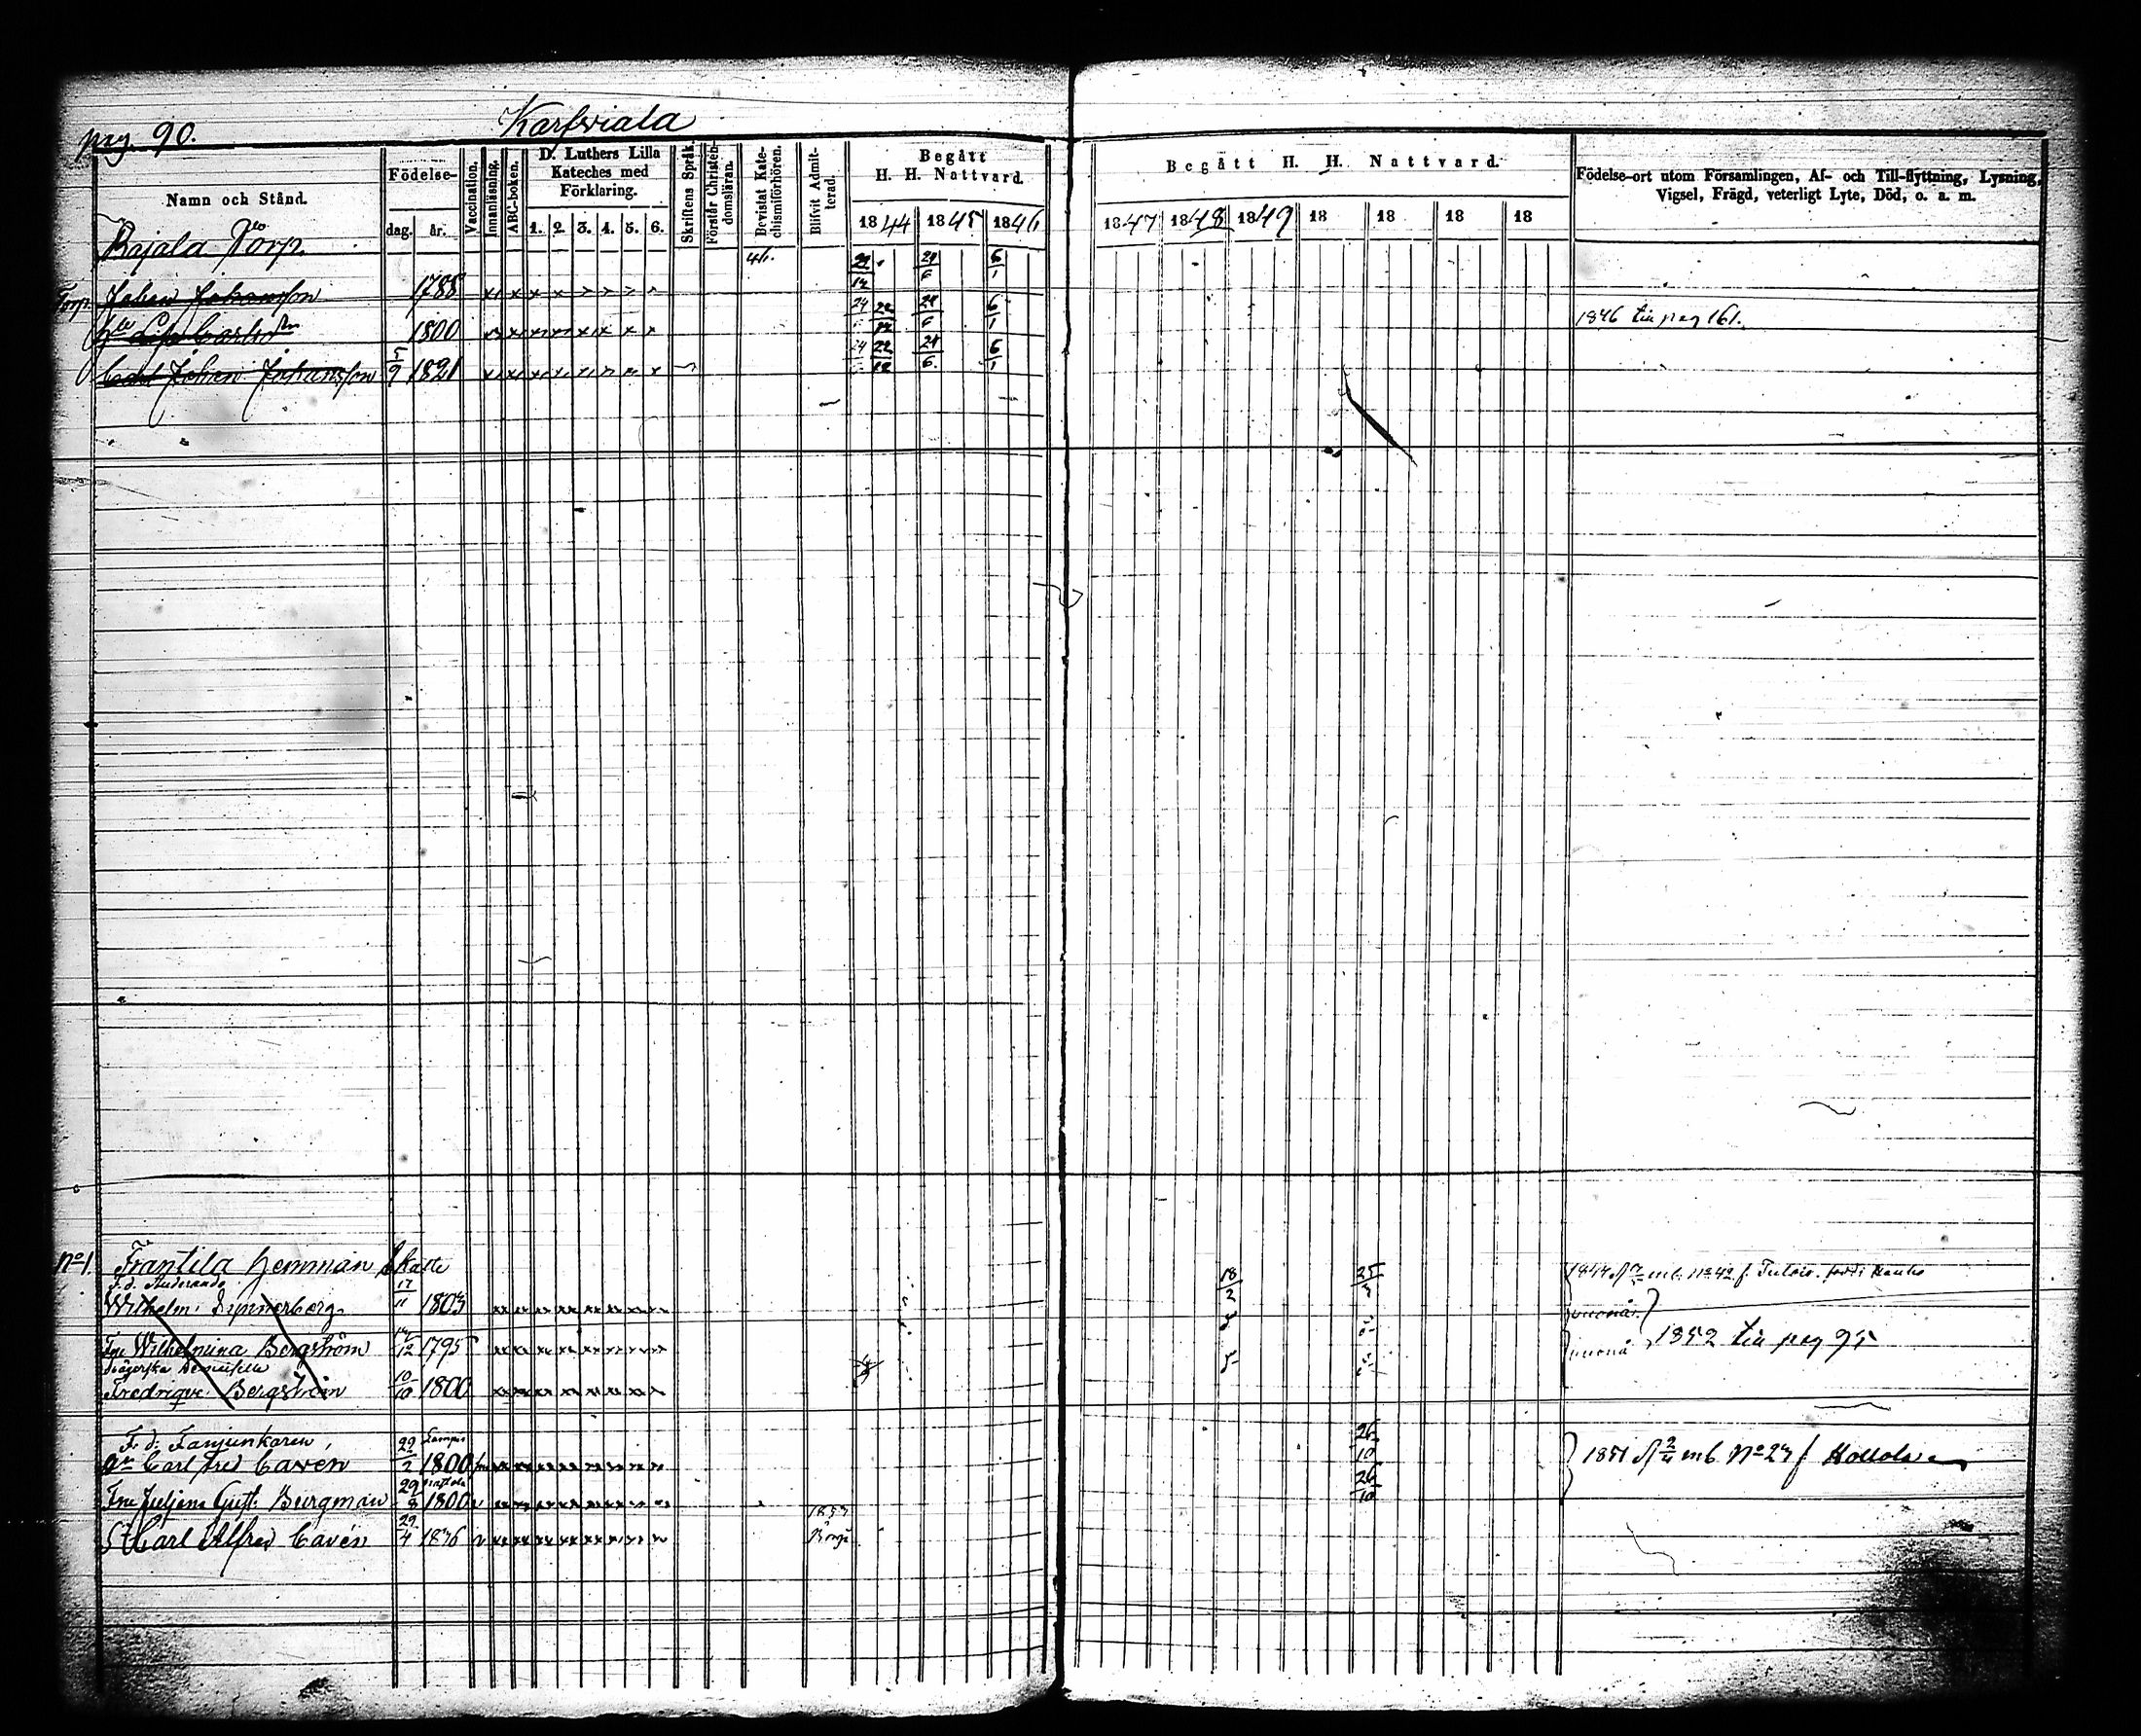 pag. 90.
Karfviala
Namn och Stånd.
Födelse-
dag.
år.
Vaccination.
Innanläsning.
ABC-boken.
D. Luthers Lilla
Kateches med
Förklaring.
1. 2. 3. 4. 5. 6.
Skriftens Språk.
Förstår Christen-
domsläran.
Bevistat Kate-
chismiförhören.
Blifvit Admit-
terad.
Begått
H. H. Nattvard.
1844 1845 1846
Begått H. H. Nattvard.
1847 1848 1849 18 18 18 18
Födelse-ort utom Församlingen, Af- och Till-flyttning, Lysning,
Vigsel, Frägd, veterligt Lyte, Död, o. a. m.
Rajala Torp.
46.
Torp. Johan Johansson 1788
1800 1846 till pag 161.
Carl Johan Johansson 5/9 1821
No 1. Frantila hemman Skatte
F. d. Studerande
Wilhelm 17/11 1803 18/2 25/3
Fru Wilhelmina Bergström 1795
1852 till pag 95
Demoiselle
Fredrique Bergström 10/10 1800
F. d. Fanjunkaren
Carl Fred Cavén 22/2 1800 26/10 1851 mb. No 27 f Hollola
Fru Juliana Gust. Burgman 29/8 1800 26/10
S. Carl Alfred Cavén 29/4 1836